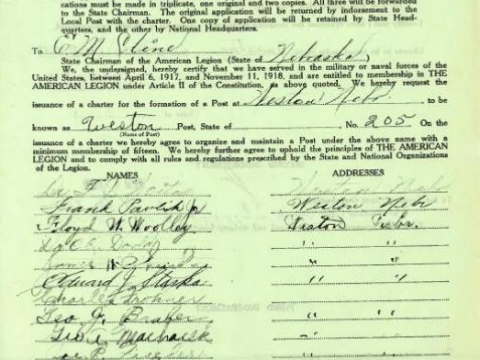 cations must be made in triplicate, one original and two copies. All three will be forwarded
to the State Chairman. The original application will be returned by indorsement to the
Local Post with a charter. One copy of application will be retained by State Head-
quarters, and the other by National Headquarters.
To
State Chairman of the American Legion (State of Nebraska)
We, the undersigned, hereby certify that we have served in the military or naval forces of the
United States, between April 6, 1917, and November 11, 1918, and are entitled to membership in THE
AMERICAN LEGION under Article II of the Constitution, as above quoted. We hereby request
issuance of a charter for the formation of a Post at Weston Nebr to be
known as Weston Post, State of No. 205 On the
(Name of Post)
issuance of a charter we hereby agree to organize and maintain a Post under the above name with a
minimum membership of fifteen. We hereby further agree to uphold the principles of THE AMERICAN
LEGION and to comply with all rules and regulations prescribed by the State and National Organizations
of the Legion.
NAMES ADDRESSES
Weston Nebr
Frank Pavlik Jr Weston Nebr
Floyd W. Woolley Weston Nebr.
" "
" "
Edward J. " "
Charles " "
Geo J. " "
" "
" "